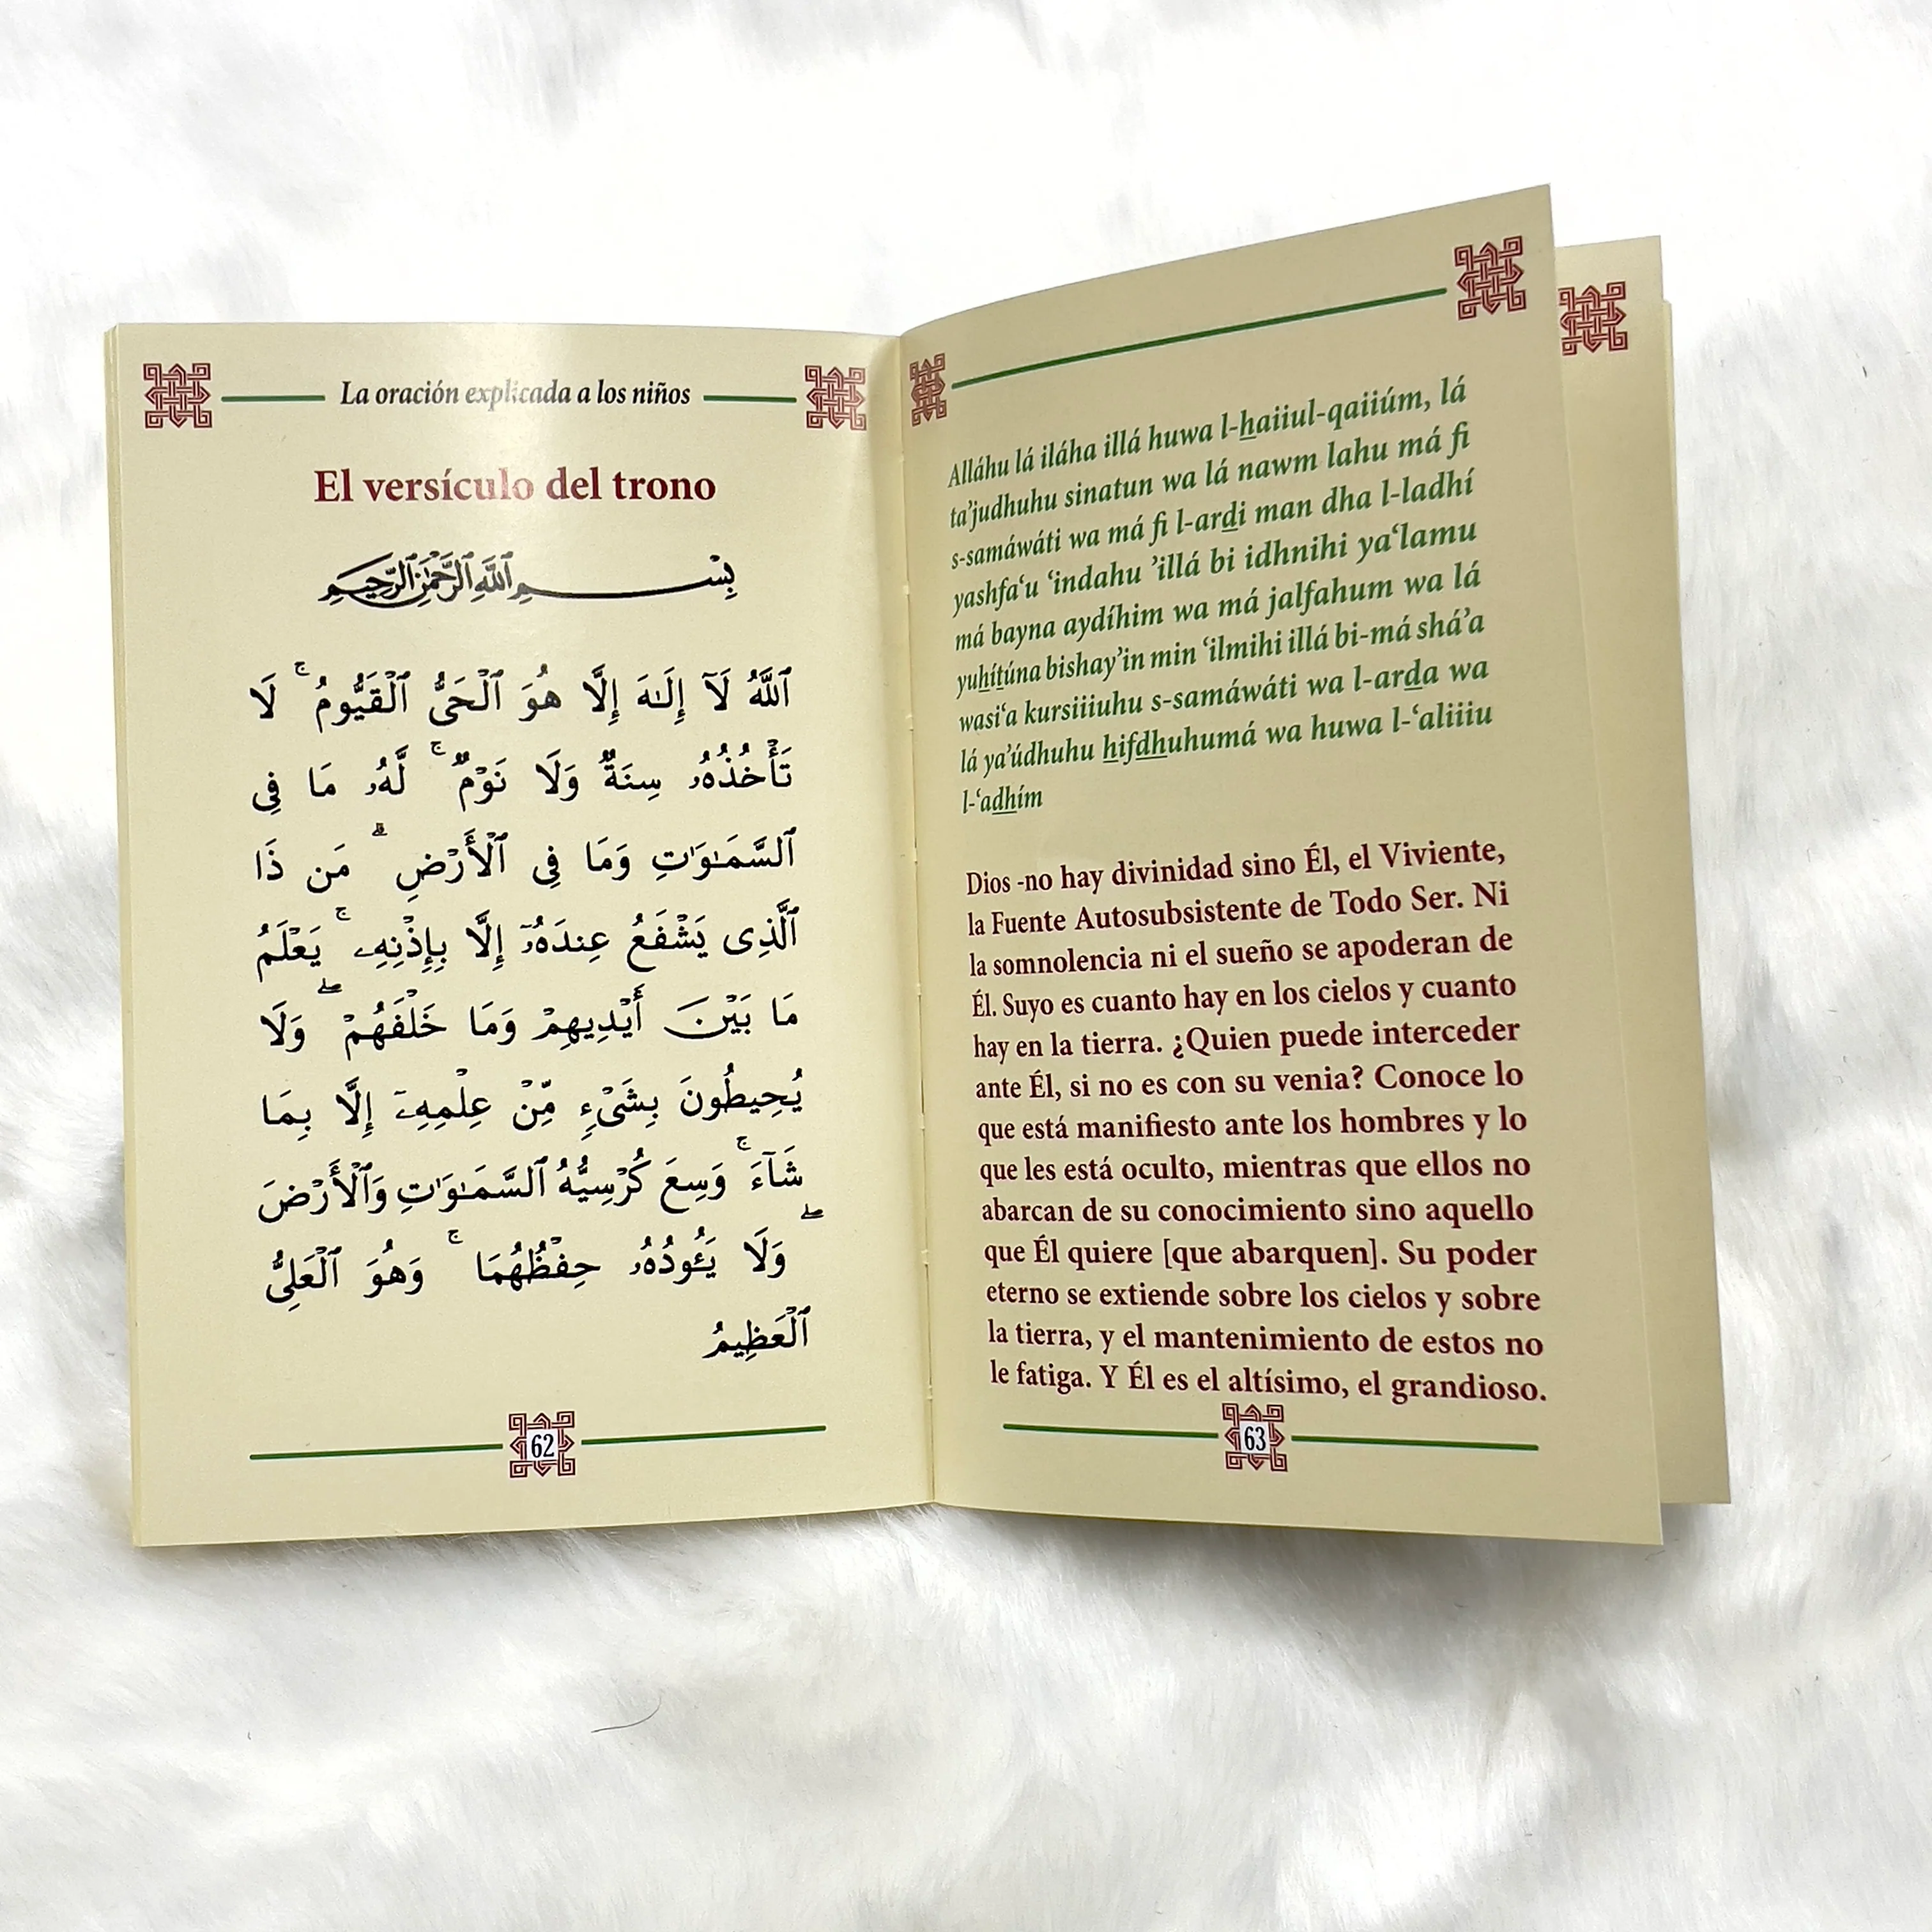 La oración explicada a los niños
El versículo del trono
بِسْمِ ٱللَّهِ ٱلرَّحْمَٰنِ ٱلرَّحِيمِ
ٱللَّهُ لَآ إِلَـٰهَ إِلَّا هُوَ ٱلْحَىُّ ٱلْقَيُّومُ ۚ لَا
تَأْخُذُهُۥ سِنَةٌ وَلَا نَوْمٌ ۚ لَّهُۥ مَا فِى
ٱلسَّمَـٰوَٰتِ وَمَا فِى ٱلْأَرْضِ ۗ مَن ذَا
ٱلَّذِى يَشْفَعُ عِندَهُۥٓ إِلَّا بِإِذْنِهِۦ ۚ يَعْلَمُ
مَا بَيْنَ أَيْدِيهِمْ وَمَا خَلْفَهُمْ ۖ وَلَا
يُحِيطُونَ بِشَىْءٍ مِّنْ عِلْمِهِۦٓ إِلَّا بِمَا
شَآءَ ۚ وَسِعَ كُرْسِيُّهُ ٱلسَّمَـٰوَٰتِ وَٱلْأَرْضَ
ۖ وَلَا يَـُٔودُهُۥ حِفْظُهُمَا ۚ وَهُوَ ٱلْعَلِىُّ
ٱلْعَظِيمُ
62
Alláhu lá iláha illá huwa l-haiiul-qaiiúm, lá
ta’judhuhu sinatun wa lá nawm lahu má fi
s-samáwáti wa má fi l-ardi man dha l-ladhí
yashfa‘u ‘indahu ’illá bi idhnihi ya‘lamu
má bayna aydíhim wa má jalfahum wa lá
yuhítúna bishay’in min ‘ilmihi illá bi-má shá’a
wasi‘a kursiiiuhu s-samáwáti wa l-arda wa
lá ya’údhuhu hifdhuhumá wa huwa l-‘aliiiu
l-‘adhím
Dios -no hay divinidad sino Él, el Viviente,
la Fuente Autosubsistente de Todo Ser. Ni
la somnolencia ni el sueño se apoderan de
Él. Suyo es cuanto hay en los cielos y cuanto
hay en la tierra. ¿Quien puede interceder
ante Él, si no es con su venia? Conoce lo
que está manifiesto ante los hombres y lo
que les está oculto, mientras que ellos no
abarcan de su conocimiento sino aquello
que Él quiere [que abarquen]. Su poder
eterno se extiende sobre los cielos y sobre
la tierra, y el mantenimiento de estos no
le fatiga. Y Él es el altísimo, el grandioso.
63